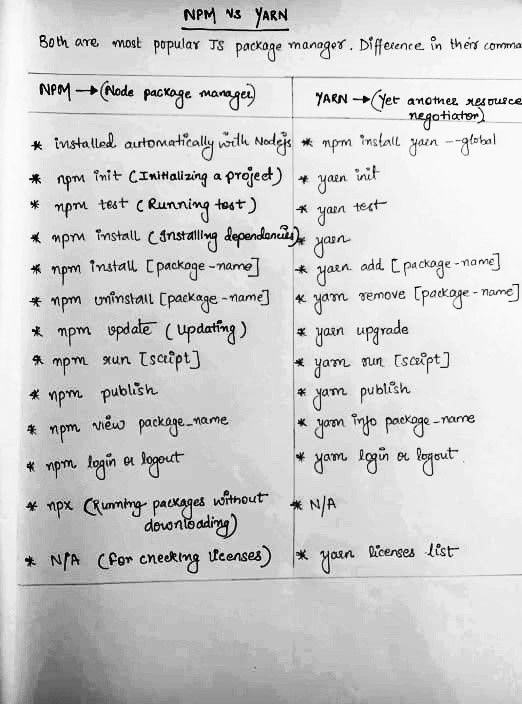 NPM VS YARN
Both are most popular JS package manager. Difference in their comma
NPM → (Node package manager)
YARN → (Yet another resource
negotiator)
* installed automatically with Nodejs
* npm install yarn --global
* npm init (Initializing a project)
* yarn init
* npm test (Running test)
* yarn test
* npm install (Installing dependancies)
* yarn
* npm install [package-name]
* yarn add [package-name]
* npm uninstall [package-name]
* yarn remove [package-name]
* npm update (Updating)
* yarn upgrade
* npm run [script]
* yarn run [script]
* npm publish
* yarn publish
* npm view package_name
* yarn info package-name
* npm login or logout
* yarn login or logout
* npx (Running packages without
downloading)
* N/A
* N/A (for checking licenses)
* yarn licenses list